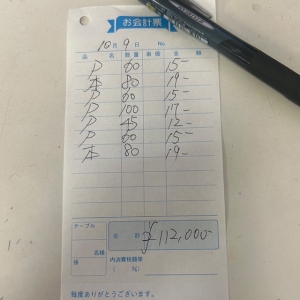 お会計票
10月 9日 No.
品 名 数量 単価 金 額
P 60 15-
本 80 19-
P 60 15-
P 100 17-
P 45 12-
P 60 15-
本 80 19-
テーブル
合 計 ¥112,000-
名様
内消費税額等
係
( %)
毎度ありがとうございます。